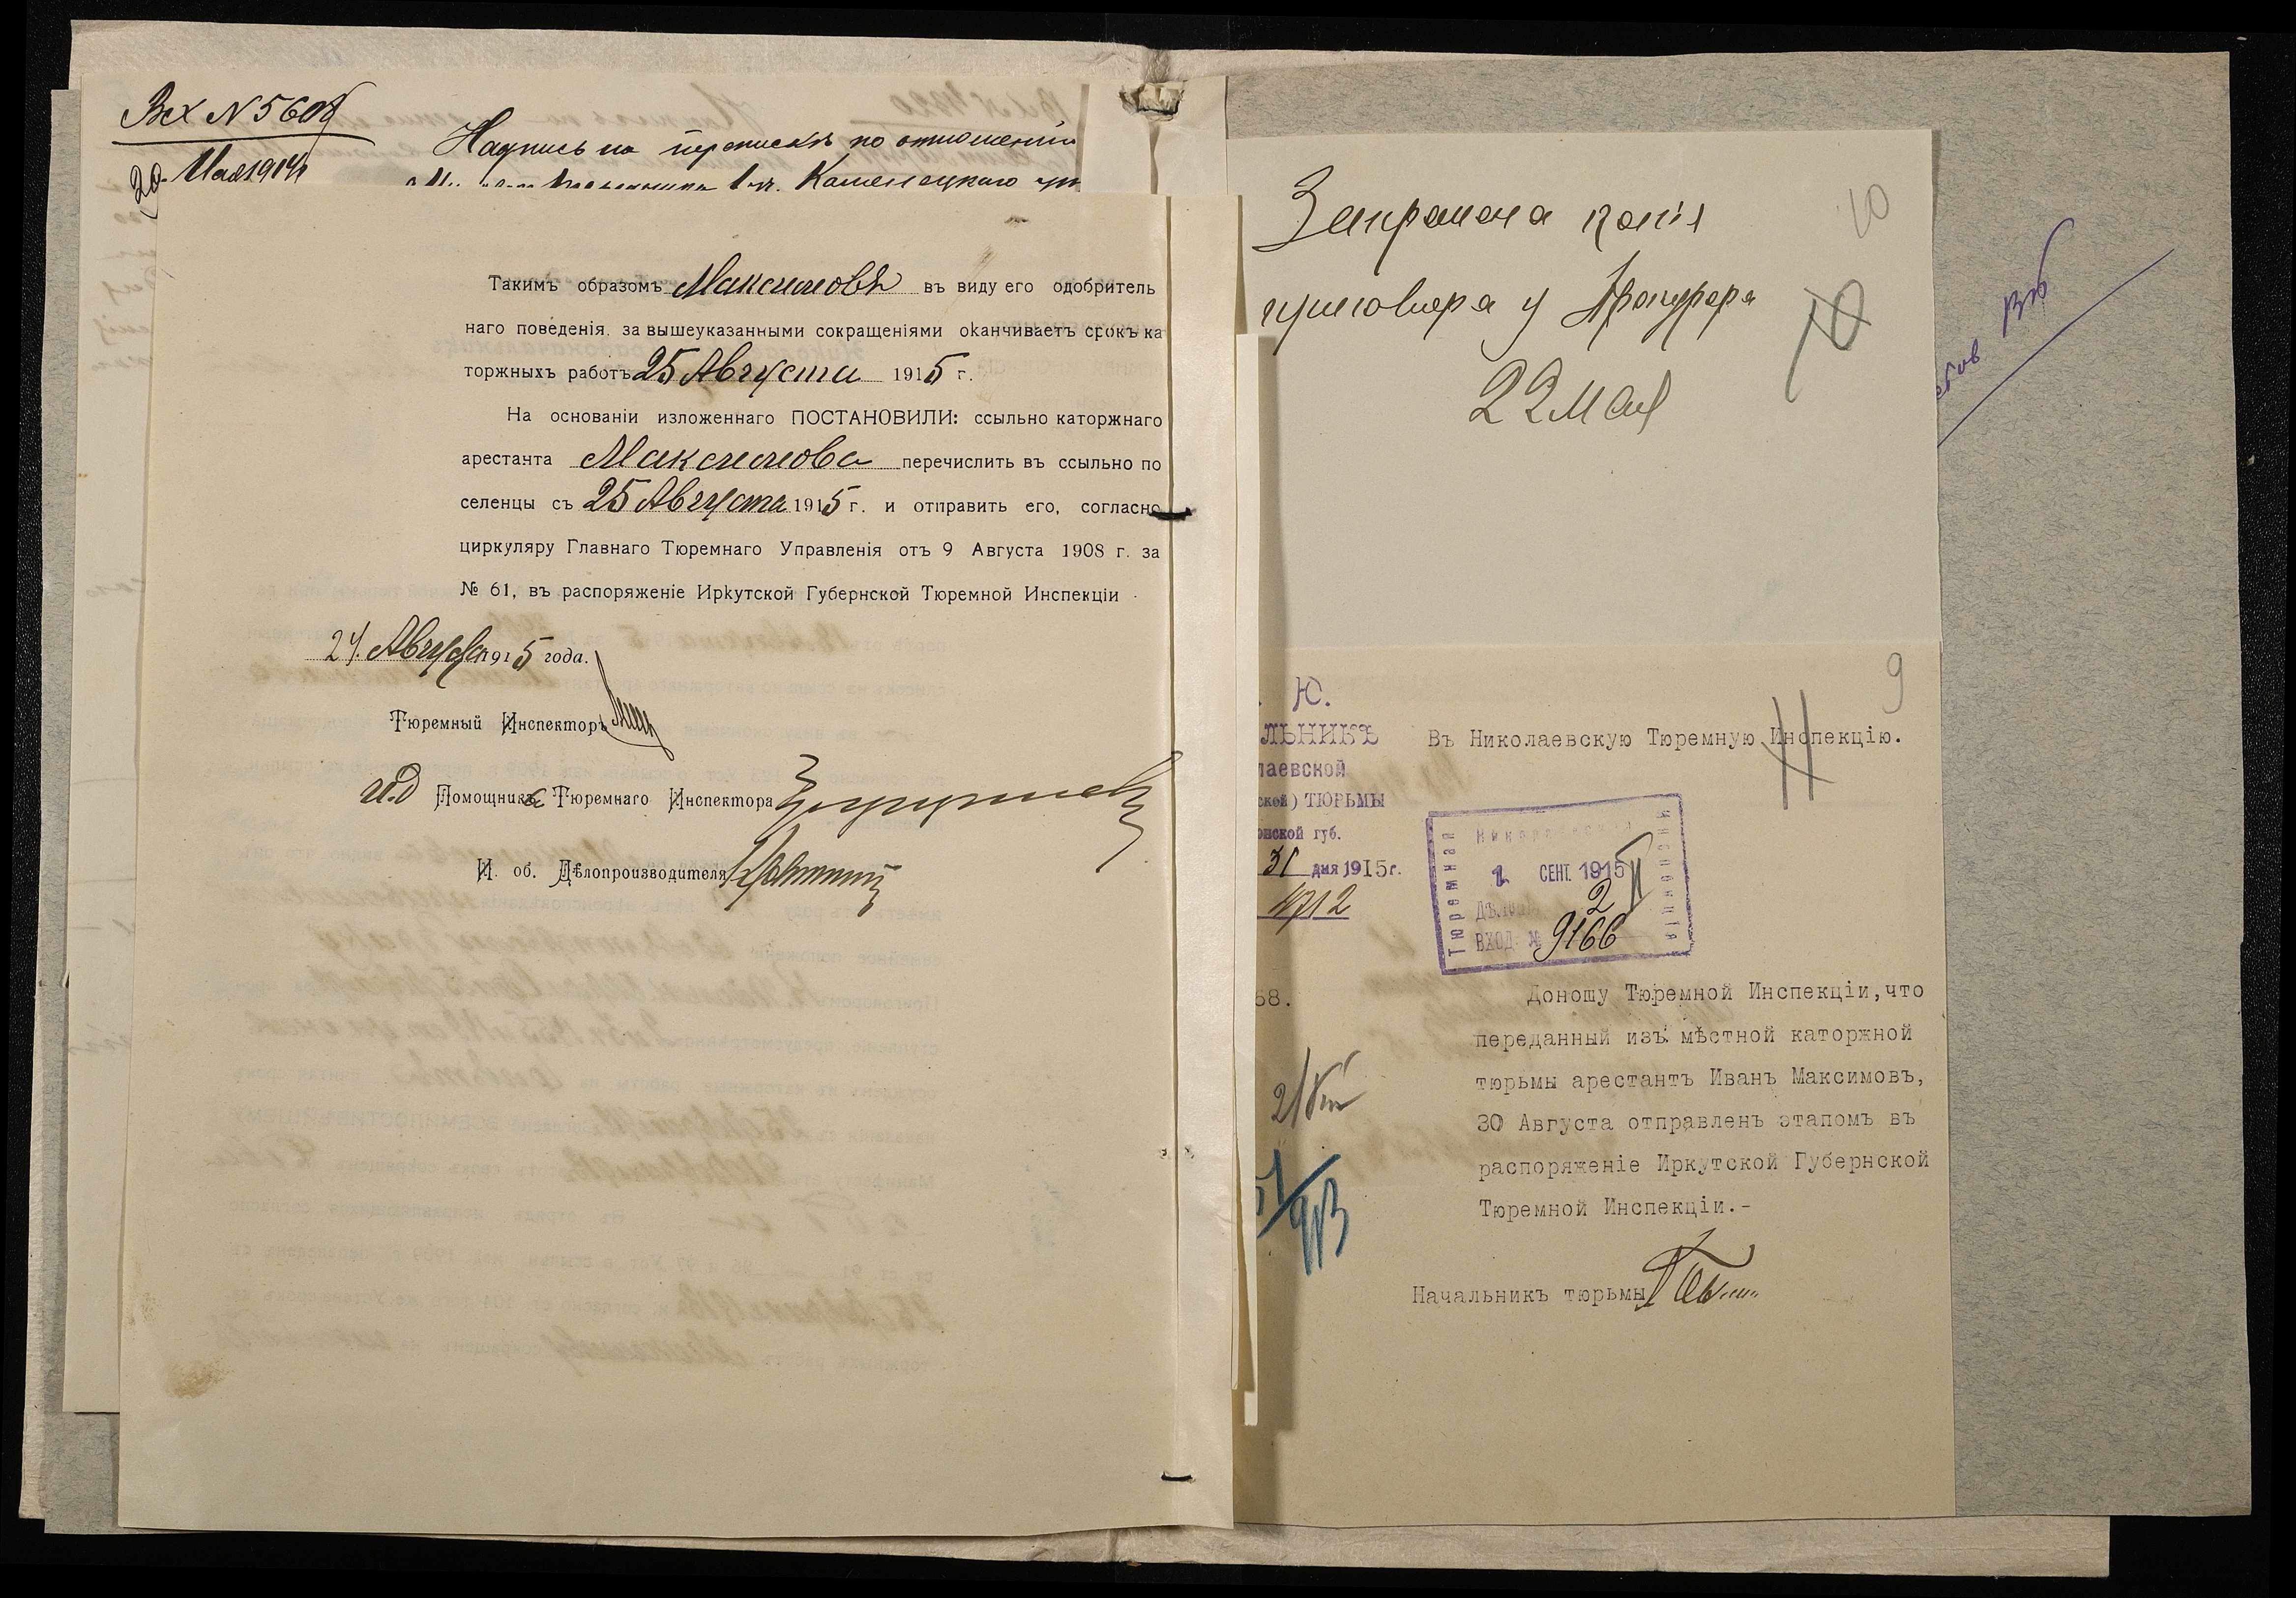 Вх N 5608
20 Мая 1914
Надпись на перепискѣ по отношенію
Каменецкаго
Такимъ образомъ Максимовъ въ виду его одобритель
наго поведенія, за вышеуказанными сокращеніями оканчиваетъ срокъ ка
торжныхъ работъ 25 Августа 1915 г.
На основаніи изложеннаго ПОСТАНОВИЛИ: ссыльно каторжнаго
арестанта Максимова перечислить въ ссыльно по
селенцы съ 25 Августа 1915 г. и отправить его, согласно
циркуляру Главнаго Тюремнаго Управленія отъ 9 Августа 1908 г. за
№ 61, въ распоряженіе Иркутской Губернской Тюремной Инспекціи
24 Августа 1915 года.
Тюремный Инспекторъ
и.д Помощника Тюремнаго Инспектора
И. об. Дѣлопроизводителя
10
Запрошена копія
приговора у Прокурора
10
22 мая
9
. Ю.
ЛЬНИКЪ
лаевской
ской) ТЮРЬМЫ
онской губ.
31 дня 1915 г.
4712
68.
Въ Николаевскую Тюремную Инспекцію.
11
Николаевская
Тюремная
Инспекція
1 СЕНТ. 1915
2
ВХОД. № 9166
Доношу Тюремной Инспекціи, что
переданный изъ мѣстной каторжной
тюрьмы арестантъ Иванъ Максимовъ,
30 Августа отправленъ этапомъ въ
распоряженіе Иркутской Губернской
Тюремной Инспекціи.-
Начальникъ тюрьмы